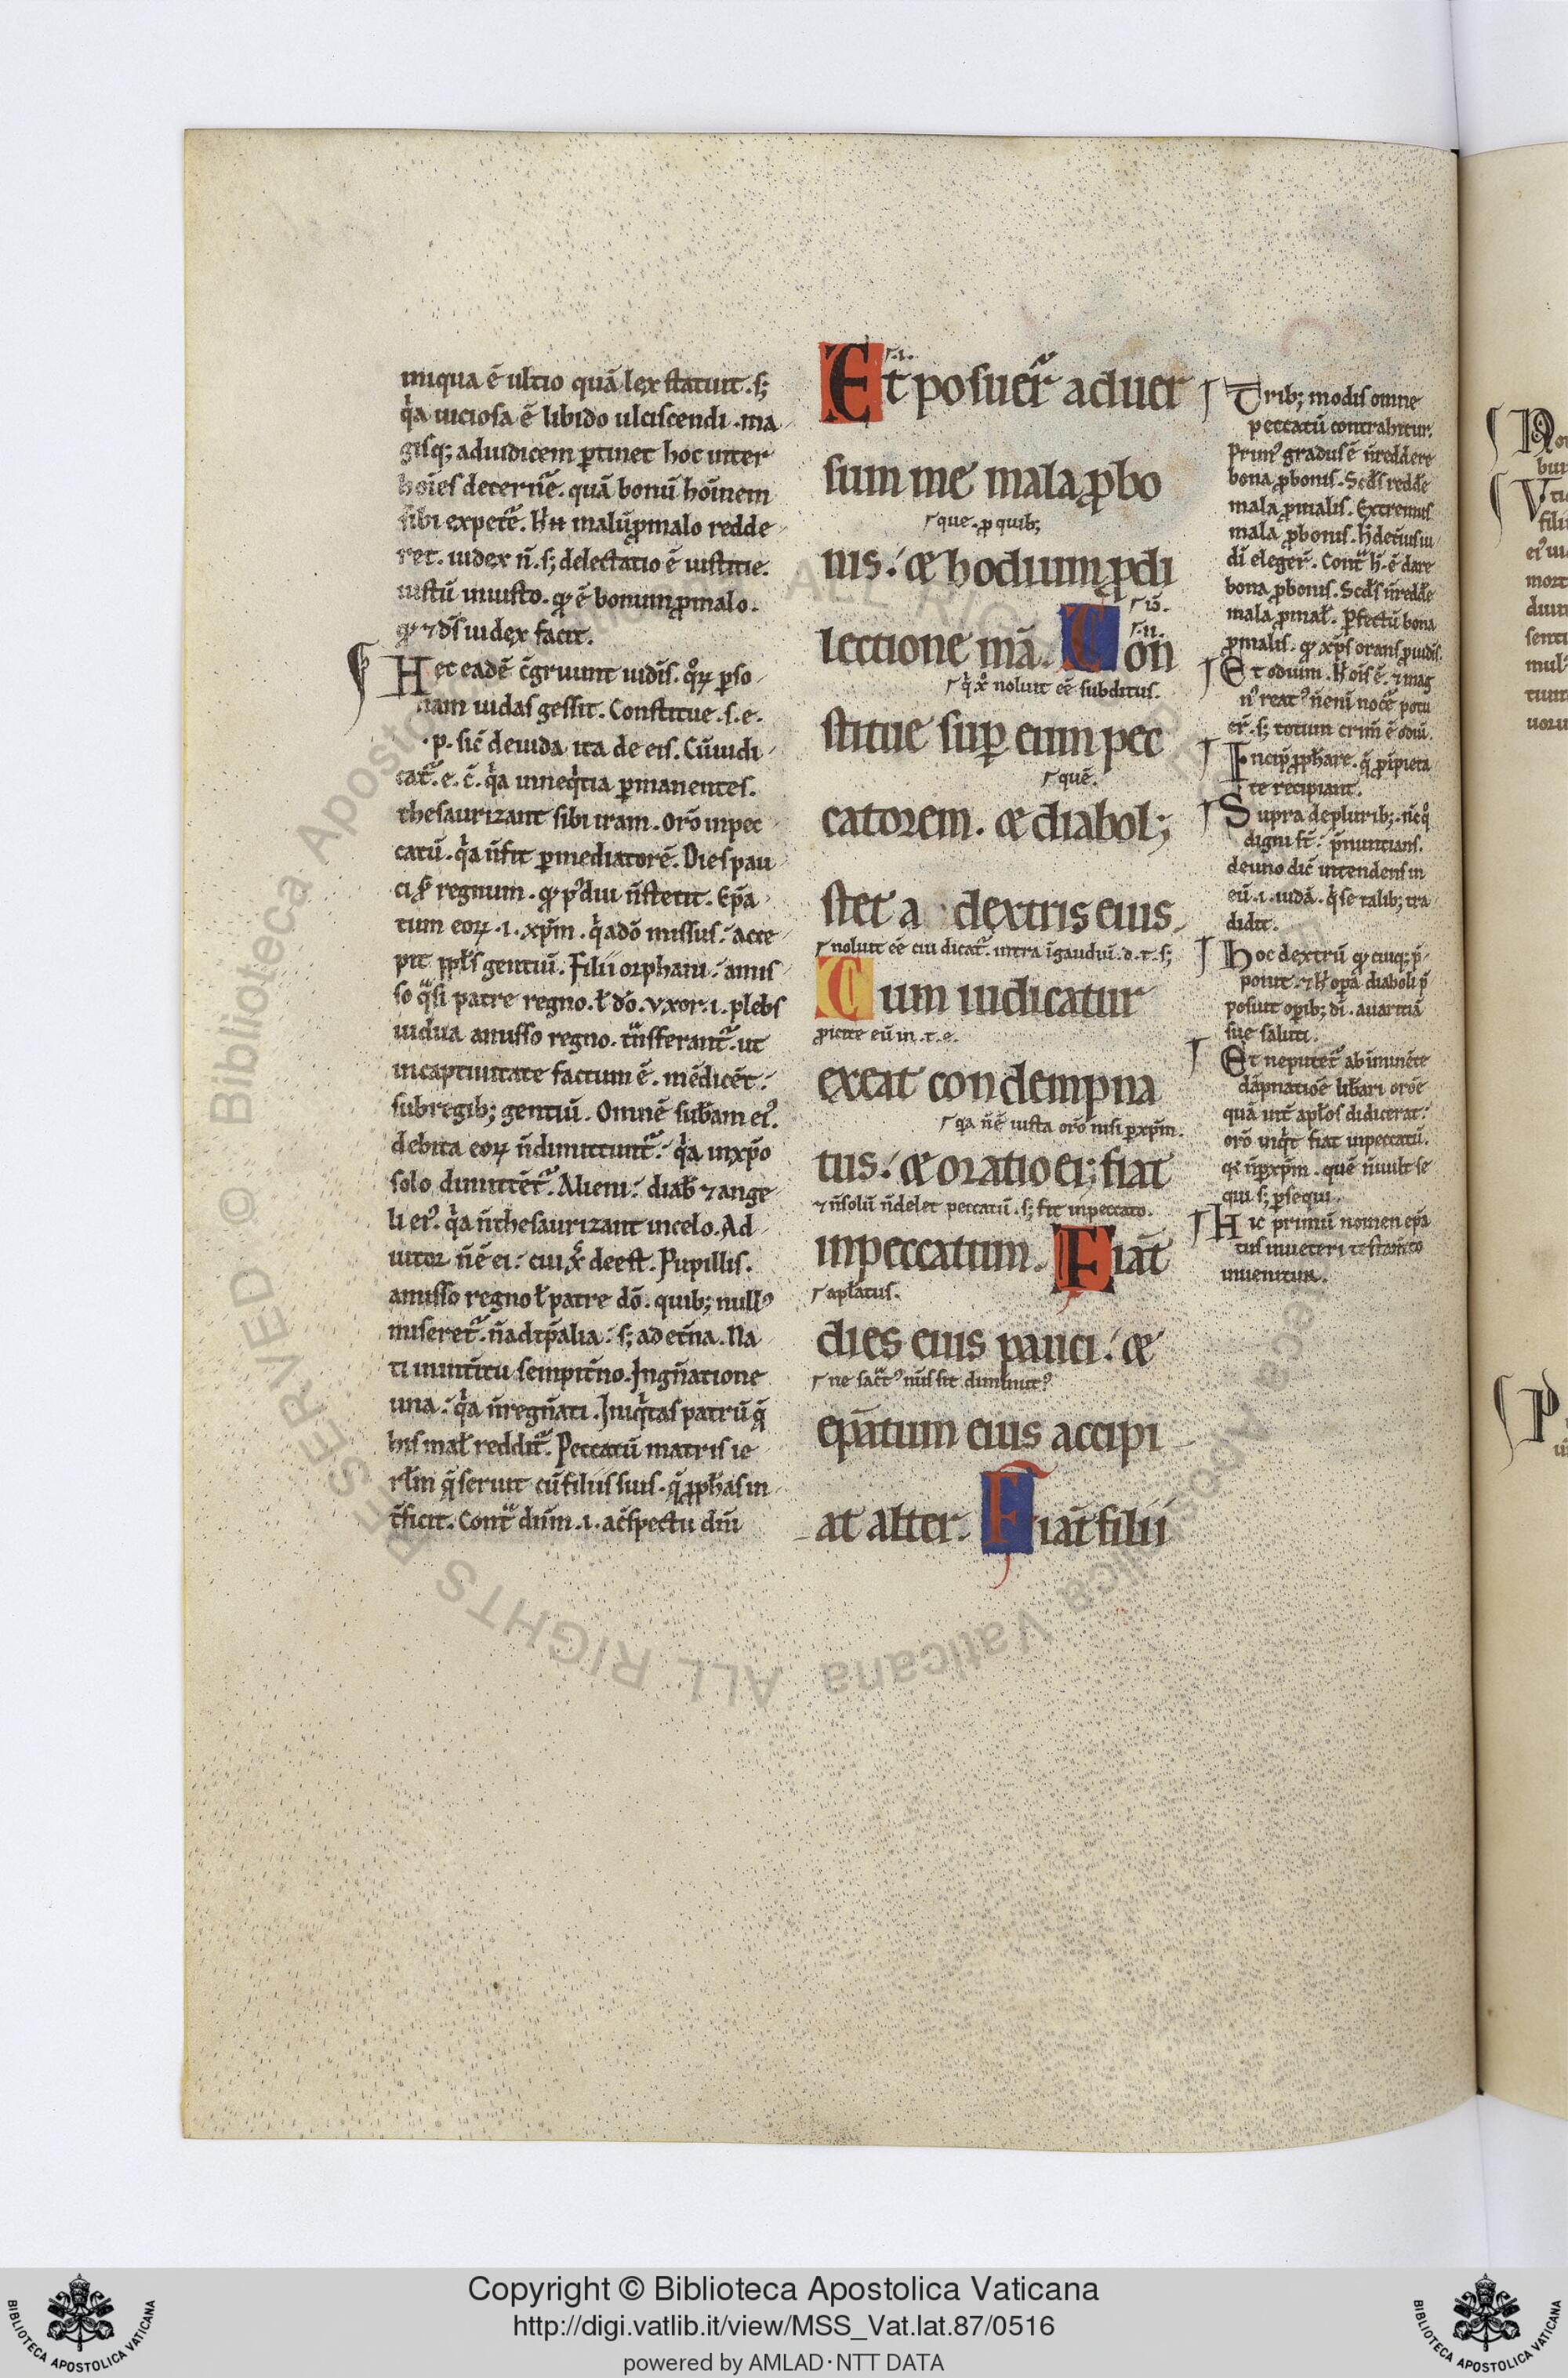 iniqua ē ultio quā lex statuit. s;
q̓a uiciosa ē libido ulciscendi. ma
gisq; ad iudicem ꝑtinet hoc inter
hoīes decern̄e. quā bonū hoīnem
sibi expet̄e. malū ꝓ malo redde
ret. iudex n̄. s; delectatio ē iustitie.
iustū iniusto. qđ ē bonum ꝓ malo.
qđ ⁊ d̄s iudex facit.
Hec eadē c̄gruunt iudīs. qꝝ ꝑso
nam iudas gessit. Constitue .s. e.
.p. sic̄ de iuda ita de eis. Cū iudi
cat̄. e. c̄. q̓a in neq̓tia ꝑmanentes.
thesaurizant sibi iram. Orō in pec
catū. q̓a n̄ fit ꝑ mediatorē. Dies pau
ci regnum. qđ diu n̄ stetit. Ep̄a
tum eoꝝ .i. xp̄m. q̓ a dō missus: acce
pit ppl̄s gentiū. Filii orphani: amis
so q̓si patre regno. ł dō. vxor .i. plebs
uidua amisso regno. t̄nsferant̄. ut
in captiuitate factum ē. mēdicēt:
sub regib; gentiū. Omnē sub̄am ei᾽.
debita eoꝝ n̄ dimittunt̄: q̓a in xp̄o
solo dimittēt̄. Alieni: diab̄ ⁊ ange
li ei᾽. q̓a n̄ thesaurizant in celo. Ad
iutor n̄ ē ei: cui x̄ deest. Pupillis.
amisso regno ł patre dō. quib; null᾽
miseret̄. n̄ ad tp̄alia: s; ad et̄na. Na
ti in int̄itu sempit̄no. In gn̄atione
una: q̓a n̄ regn̄ati. Iniq̓tas patrū q̄
his mał reddit̄. Peccatū matris ie
rłm q̄ seruit cū filiis suis. q̄ ꝓph̄as in
t̄ficit. Cont̄ dn̄m .i. ac̄spectu dn̄i
.i.
Et posuer̄ aduer
sum me mala ꝓ bo
que. ꝓ quib;
nis: & hodium ꝓ di
iō.
lectione mā. Con
q̓ x̄ noluit eē subditus.
stitue suꝑ eum pec
quē.
catorem. & diabol;
stet a dextris eius.
noluit eē cui dicat̄. intra ī gaudiū. d. t. s;
Cum iudicatur
ꝓicite eū in .t. e.
exeat condempna
q̓a n̄ ē iusta orō nisi ꝑ xp̄m.
tus: & oratio ei; fiat
⁊ n̄ solū n̄ delet peccatū. s; fit in peccato.
in peccatum. Fiāt
apłatus.
dies eius pauci: &
epātum eius accipi
at alter. Fiāt filii
Trib; modis omne
peccatū contrahitur.
Prim᾽ gradus ē n̄ reddere
bona ꝓ bonis. Scd̄s redd̄e
mala ꝓ malis. Extremus
mala ꝓ bonis.
di eleger̄. Cont̄ h̄. ē dare
bona ꝓ bonis. Scd̄s n̄ redd̄e
mala ꝓ mał. ꝑfectū bona
ꝓ malis. qđ xp̄s orans ꝓ iudīs.
Et odium. ⁊ mag
n᾽ reat᾽ n̄ enī nocē potu
er̄. s; totum crim̄ ē odiū.
Incip̄ ꝓph̄are. q̄ ꝓ īpieta
te recipiant.
Supra de plurib;.
digni st̄: p̄nuntians.
de uno dic̄ intendens in
eū .i. iudā. q̓ se talib; tra
didit.
Hoc dextrū qđ cuiq; p̄
ponit. ⁊ oꝑa diaboli p̄
posuit oꝑib; dī. auaritiā
sue saluti.
Et ne putet᾽ ab iminēte
dāpnatiōe lib̄ari orōe
quā int̄ apłos didicerat:
orō inq̓t fiat in peccatū.
n̄ ꝑ xp̄m. quē n̄ uult se
qui s; ꝑsequi.
Hic primū nomen ep̄a
tus in ueteri testam̄to
inuenitur.
Copyright © Biblioteca Apostolica Vaticana
http://digi.vatlib.it/view/MSS_Vat.lat.87/0516
powered by AMLAD·NTT DATA